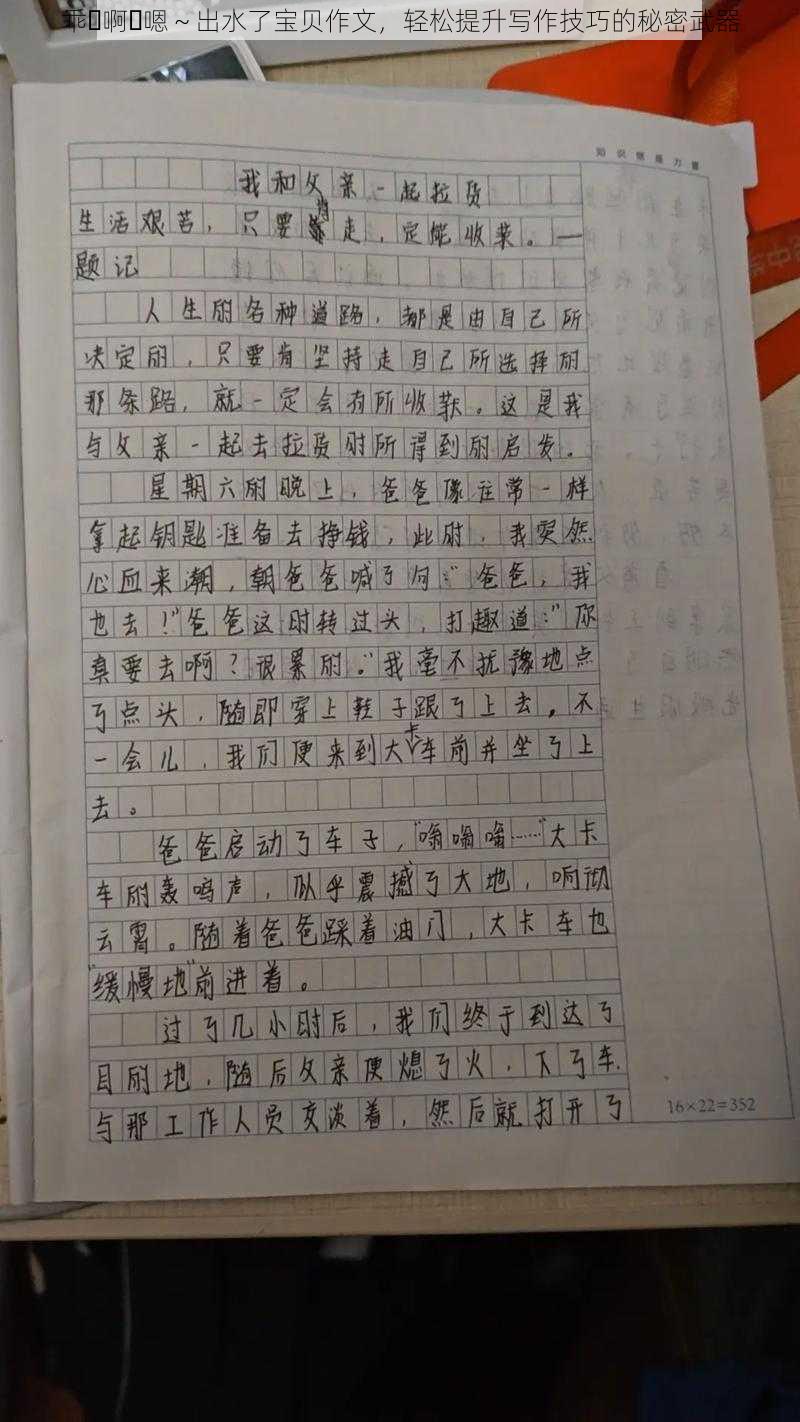 乖 啊 嗯～出水了宝贝作文，轻松提升写作技巧的秘密武器
知识就是力量
我和父亲一起拉货
生活艰苦，只要肯走，定能收菜。——
题记
人生的各种道路，都是由自己所
决定的，只要肯坚持走自己所选择的
那条路，就一定会有所收获。这是我
与父亲一起去拉货时所得到的启发。
星期六的晚上，爸爸像往常一样
拿起钥匙准备去挣钱，此时，我突然
心血来潮，朝爸爸喊了句：“爸爸，我
也去！”爸爸这时转过头，打趣道：“你
真要去啊？很累的。”我毫不犹豫地点
了点头，随即穿上鞋子跟了上去。不
一会儿，我们便来到大卡车前并坐了上
去。
爸爸启动了车子，“嗡嗡嗡……”大卡
车的轰鸣声，似乎震撼了大地，响彻
云霄。随着爸爸踩着油门，大卡车也
“缓慢地”前进着。
过了几小时后，我们终于到达了
目的地，随后父亲便熄了火，下了车.
与那工作人员交谈着，然后就打开了
16×22=352